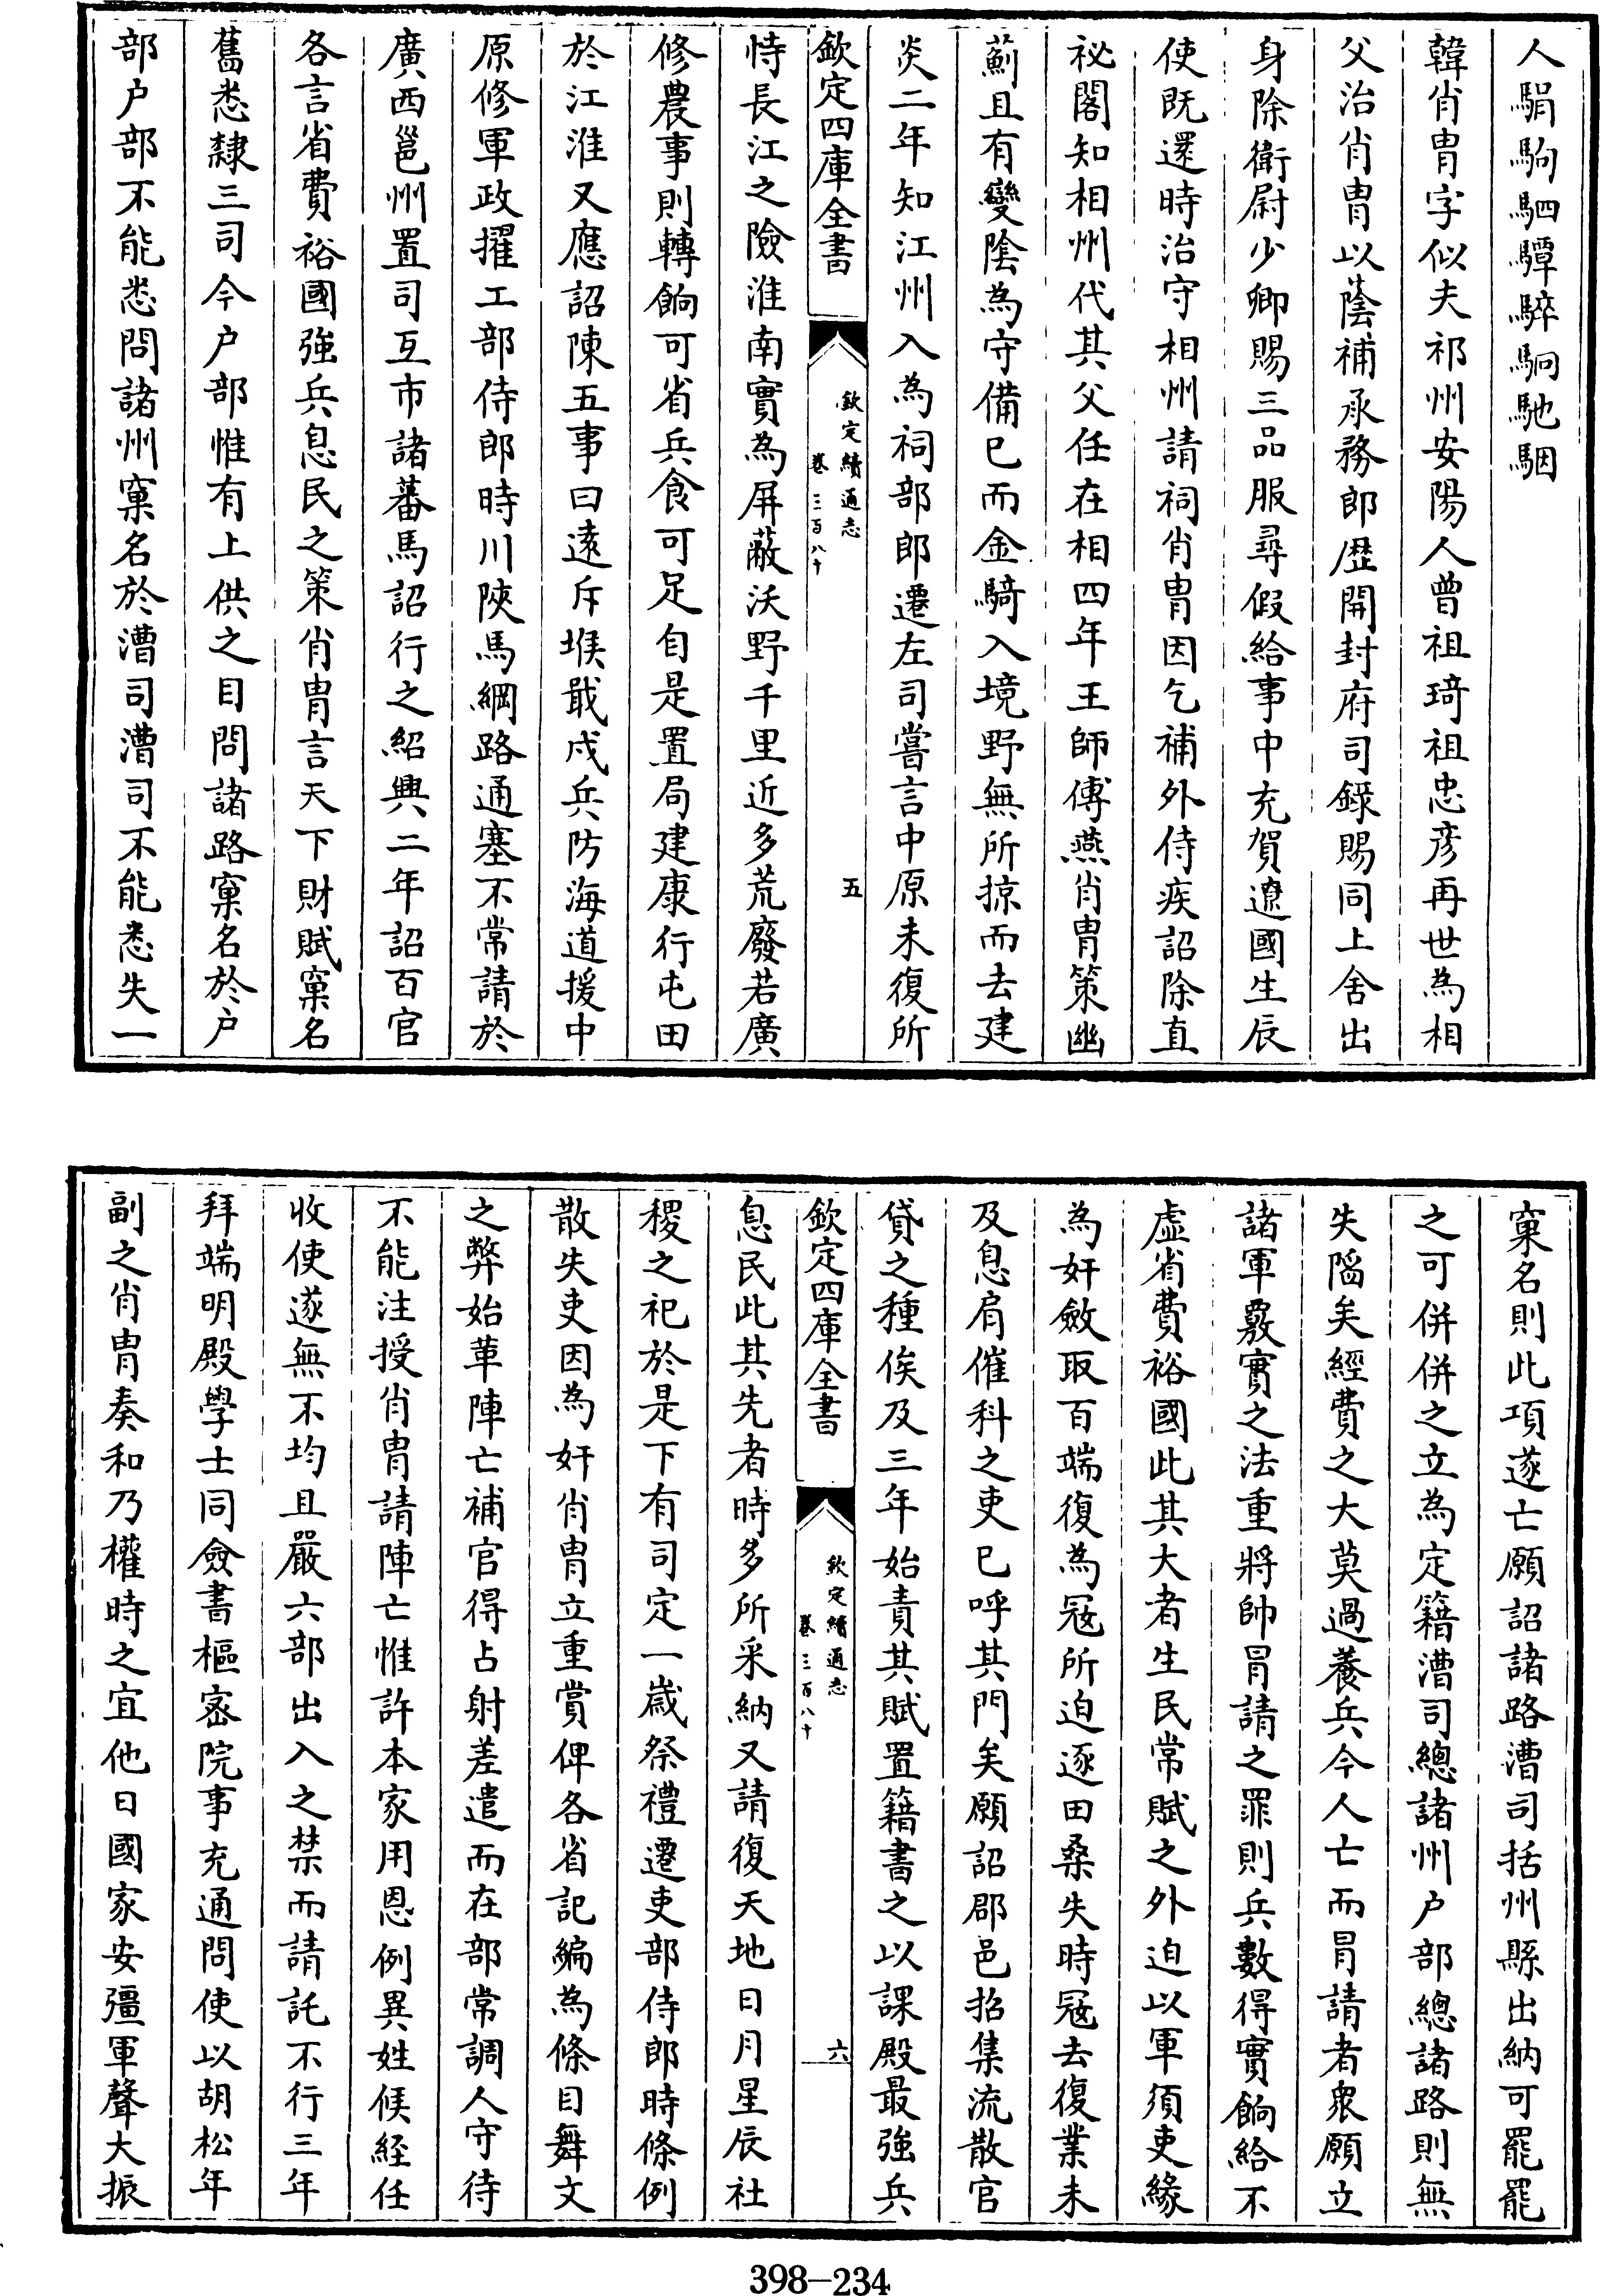 人騆駒駟驔騂駉馳駰
韓肖胄字似夫祁州安陽人曾祖琦祖忠彦再世為相
父治肖胄以蔭補承務郎歴開封府司錄賜同上舍出
身除衛尉少卿賜三品服尋假給事中充賀遼國生辰
使既還時治守相州請祠肖胄因乞補外侍疾詔除直
祕閣知相州代其父任在相四年王師傅燕肖胄策幽
薊且有變陰為守備已而金騎入境野無所掠而去建
炎二年知江州入為祠部郎遷左司嘗言中原未復所
欽定四庫全書
欽定續通志
卷三百八十
五
恃長江之險淮南實為屏蔽沃野千里近多荒廢若廣
修農事則轉餉可省兵食可足自是置局建康行屯田
於江淮又應詔陳五事曰遠斥堠戢戍兵防海道援中
原修軍政擢工部侍郎時川陜馬綱路通塞不常請於
廣西邕州置司互市諸蕃馬詔行之紹興二年詔百官
各言省費裕國強兵息民之策肖胄言天下財賦窠名
舊悉隸三司今户部惟有上供之目問諸路窠名於户
部户部不能悉問諸州窠名於漕司漕司不能悉失一
窠名則此項遂亡願詔諸路漕司括州縣出納可罷罷
之可併併之立為定籍漕司總諸州户部總諸路則無
失陷矣經費之大莫過養兵今人亡而冐請者衆願立
諸軍覈實之法重將帥冐請之罪則兵數得實餉給不
虚省費裕國此其大者生民常賦之外迫以軍須吏緣
為奸斂取百端復為冦所迫逐田桑失時冦去復業未
及息肩催科之吏已呼其門矣願詔郡邑招集流散官
貸之種俟及三年始責其賦置籍書之以課殿最強兵
欽定四庫全書
欽定續通志
卷三百八十
六
息民此其先者時多所采納又請復天地日月星辰社
稷之祀於是下有司定一歳祭禮遷吏部侍郎時條例
散失吏因為奸肖胄立重賞俾各省記編為條目舞文
之弊始革陣亡補官得占射差遣而在部常調人守待
不能注授肖胄請陣亡惟許本家用恩例異姓候經任
收使遂無不均且嚴六部出入之禁而請託不行三年
拜端明殿學士同僉書樞宻院事充通問使以胡松年
副之肖胄奏和乃權時之宜他日國家安彊軍聲大振
398-234